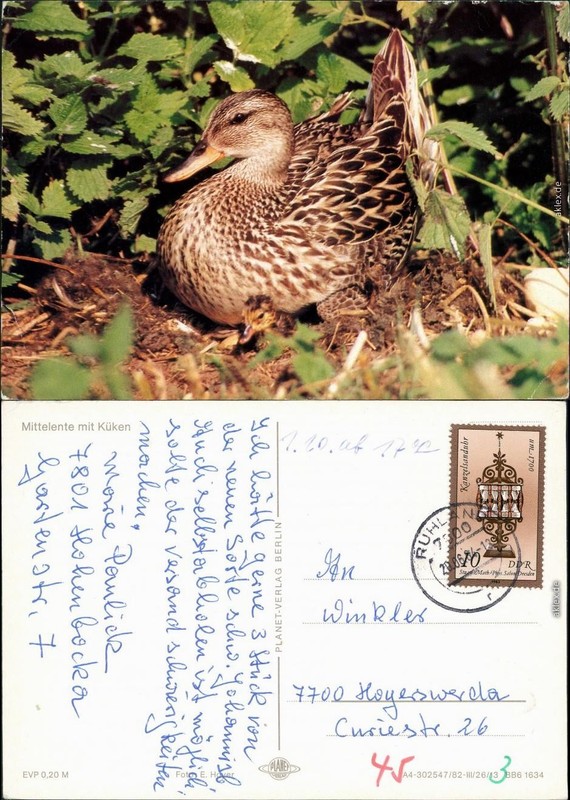 Mittelente mit Küken
Ich hätte gerne 3 Stück von
der neuen Sorte schw. Johannisb
Auch selbstabholen ist möglich
sollte der Versand schwierigkeiten
machen.
Marie Paulick
7801 Hohenbocka
Gartenstr. 7
PLANET-VERLAG BERLIN
1.10. ab 17
RUHLAND
7800
Kanzelsanduhr
um 1700
10
DDR
Staatl. Math.-Phys. Salon Dresden
An
Winkler
7700 Hoyerswerda
Curiestr. 26
EVP 0,20 M
Foto: E. Höser
PLANET
A4-302547/82-III/26/13 BB6 1634
45
3
aklex.de
aklex.de